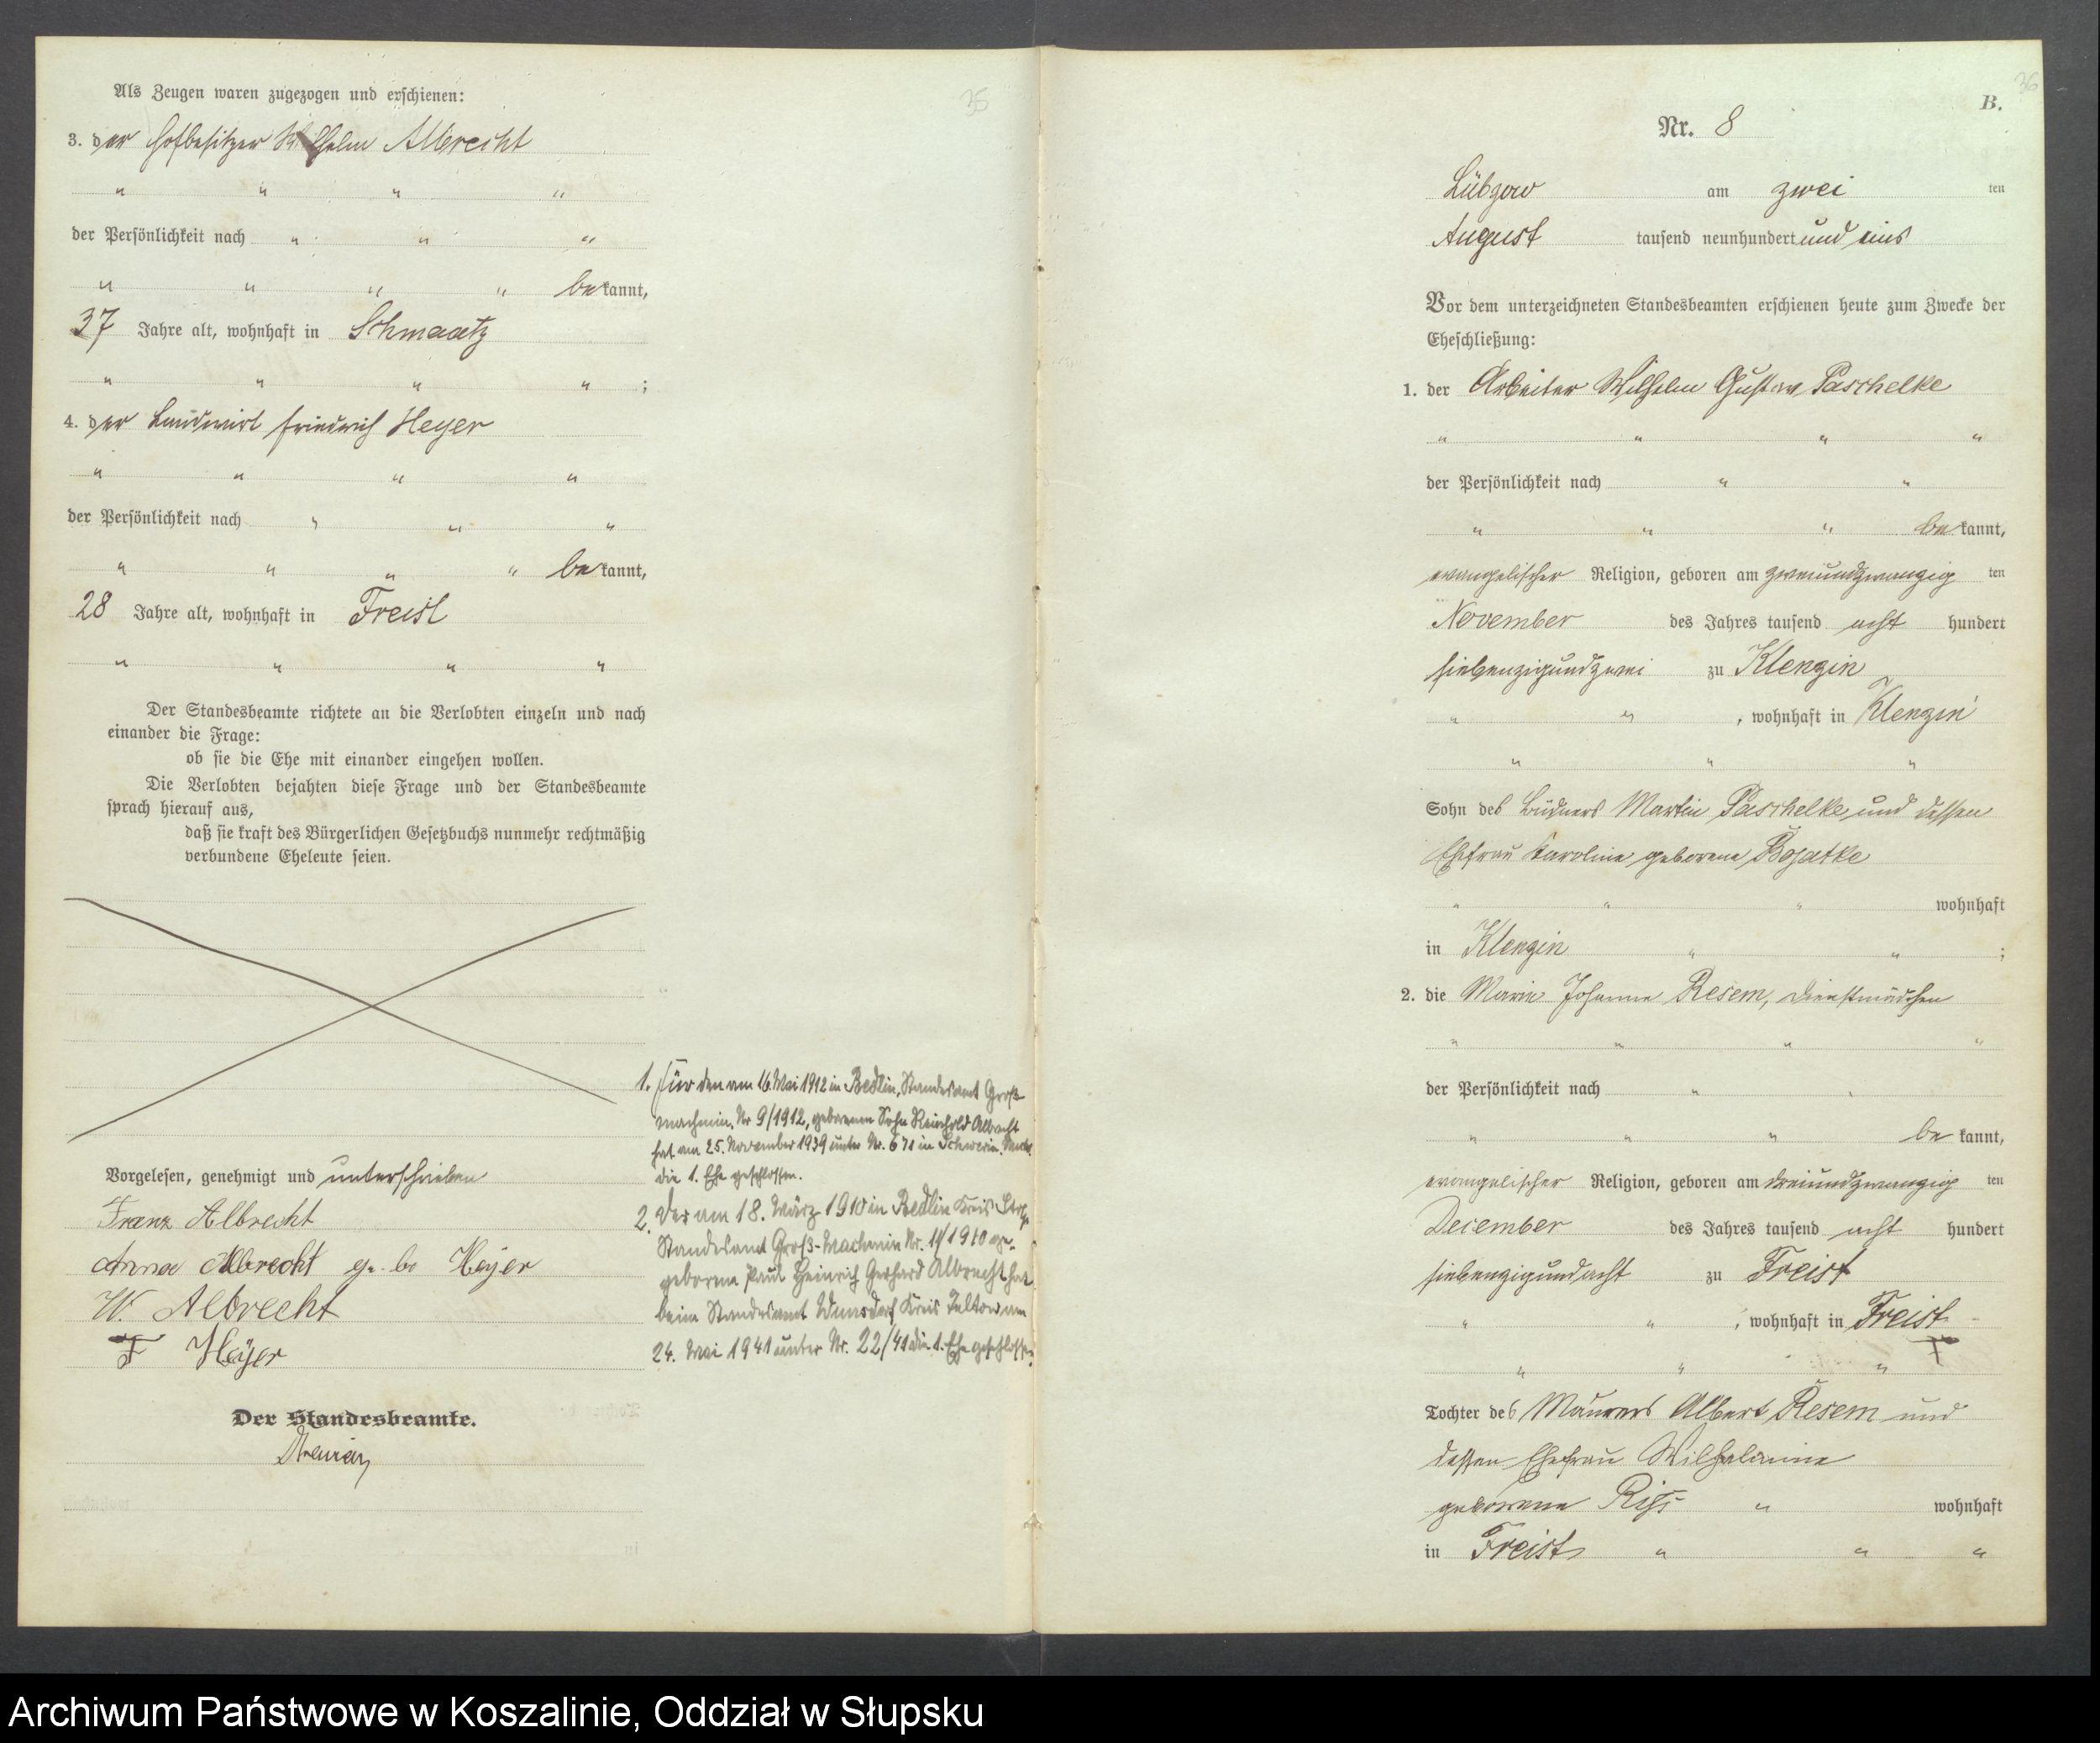 35
Als Zeugen waren zugezogen und erschienen:
3. der Hofbesitzer Wilhelm Albrecht
" " " "
der Persönlichkeit nach " " "
" " " " bekannt,
37 Jahre alt, wohnhaft in Schmaatz
" " " " ;
4. der Landwirt Friedrich Heyer
" " " "
der Persönlichkeit nach " " "
" " " " bekannt,
28 Jahre alt, wohnhaft in Freist
" " " "
Der Standesbeamte richtete an die Verlobten einzeln und nach
einander die Frage:
ob sie die Ehe mit einander eingehen wollen.
Die Verlobten bejahten diese Frage und der Standesbeamte
sprach hierauf aus,
daß sie kraft des Bürgerlichen Gesetzbuchs nunmehr rechtmäßig
verbundene Eheleute seien.
Vorgelesen, genehmigt und unterschrieben
Franz Albrecht
Anna Albrecht ge. bo Heyer
W. Albrecht
F Heÿer
Der Standesbeamte.
1. Für den am 16. Mai 1912 in Bedlin, Standesamt Groß-
machmin, Nr 9/1912, geborenen Sohn Reinhold Albrecht
hat am 25. November 1939 unter Nr. 671 in Schwerin. Meckl.
die 1. Ehe geschlossen.
2. Der am 18. März 1910 in Bedlin Kreis Stolp
Standesamt Groß-Machmin Nr. 11/1910 ge-
geborene Paul Heinrich Gerhard Albrecht hat
beim Standesamt Wünsdorf Kreis Teltow am
24. Mai 1941 unter Nr. 22/41 die 1. Ehe geschlossen.
36
B.
Nr. 8
Lübzow am zwei ten
August tausend neunhundert und eins
Vor dem unterzeichneten Standesbeamten erschienen heute zum Zwecke der
Eheschließung:
1. der Arbeiter Wilhelm Gustav Paschelke
" " " "
der Persönlichkeit nach " "
" " " bekannt,
evangelischer Religion, geboren am zweiundzwanzig ten
November des Jahres tausend acht hundert
siebenzigundzwei zu Klenzin
" " , wohnhaft in Klenzin
" " "
Sohn des Büdners Martin Paschelke und dessen
Ehefrau Karoline geborene Bojatke
" " " wohnhaft
in Klenzin " " ;
2. die Marie Johanne Resem, Dienstmädchen
" " " "
der Persönlichkeit nach " "
" " " bekannt,
evangelischer Religion, geboren am dreiundzwanzig ten
Dezember des Jahres tausend acht hundert
siebenzigundacht zu Freist
" " , wohnhaft in Freist
" " "
Tochter des Maurers Albert Resem und
dessen Ehefrau Wilhelmine
geborene " wohnhaft
in Freist " " "
Archiwum Państwowe w Koszalinie, Oddział w Słupsku